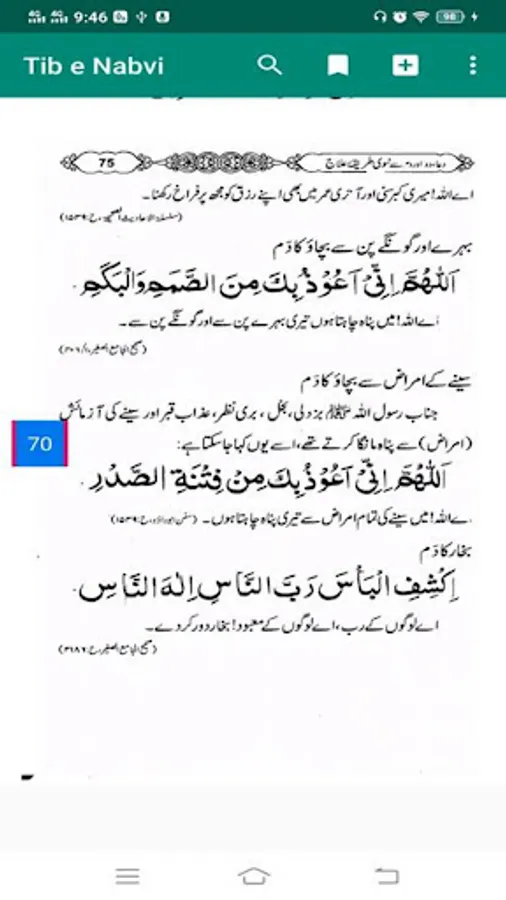 9:46
98
Tib e Nabvi
75
دعاء، دوا اور دم سے نبوی طریقۂ علاج
اے اللہ! میری کبرسنی اور آخری عمر میں بھی اپنے رزق کو مجھ پر فراخ رکھنا۔
(سلسلۃ الاحادیث الصحیحہ، ح:۱۵۳۹)
بہرے اور گونگے پن سے بچاؤ کا دَم
اَللّٰهُمَّ اِنِّیْ اَعُوْذُ بِكَ مِنَ الصَّمَمِ وَالْبَكَمِ۔
اے اللہ! میں پناہ چاہتا ہوں تیری بہرے پن سے اور گونگے پن سے۔
(صحیح الجامع الصغیر،
سینے کے امراض سے بچاؤ کا دَم
جناب رسول اللہ ﷺ بزدلی، بخل، بری نظر، عذاب قبر اور سینے کی آزمائش
(امراض) سے پناہ مانگا کرتے تھے، اسے یوں کہا جا سکتا ہے:
70
اَللّٰهُمَّ اِنِّیْ اَعُوْذُ بِكَ مِنْ فِتْنَةِ الصَّدْرِ۔
اے اللہ! میں سینے کی تمام امراض سے تیری پناہ چاہتا ہوں۔ (سنن ابوداؤد، ح:۱۵۳۹)
بخار کا دَم
اِكْشِفِ الْبَأْسَ رَبَّ النَّاسِ اِلٰهَ النَّاسِ۔
اے لوگوں کے رب، اے لوگوں کے معبود! بخار دور کر دے۔
(صحیح الجامع الصغیر،